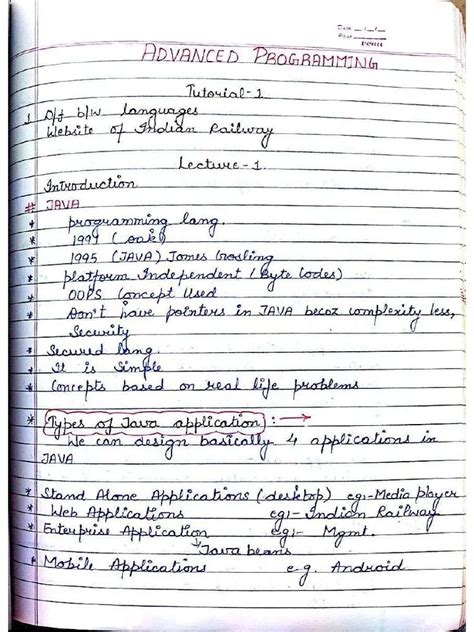 Date __/__/__
ADVANCED PROGRAMMING
Tutorial-1
1 D/f b/w languages
Website of Indian Railway
Lecture-1.
Introduction
# JAVA
* programming lang.
* 1994 (oak)
* 1995 (JAVA) James Gosling
* platform Independent (Byte Codes)
* OOPS Concept Used
* Don't have pointers in JAVA becoz complexity less,
Security
* Secured lang.
* It is Simple
* Concepts based on real life problems
* Types of Java application : →
We can design basically 4 applications in
JAVA
* Stand Alone Applications (desktop) eg:- Media player
* Web Applications eg:- Indian Railway
* Enterprise Application eg:- Mgmt.
↳ Java beans
* Mobile Applications e.g. Android